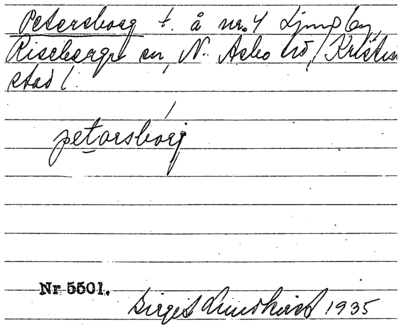 Petersborg t. å nr. 4 Ljungby
Riseberga sn, N. Åsbo hd, Kristian
stad l.
petarsborg
Nr 5501.
Birgit Lundkvist 1935